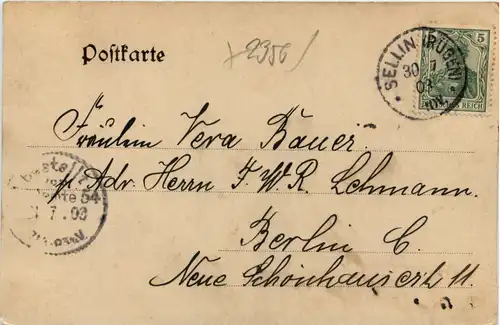 Postkarte
2356
SELLIN (RÜGEN)
30 7
5
REICH
Fräulein Vera Bauer
p/ Adr. Herrn F. W. R. Lehmann.
54
7.09
Berlin C.
Neue Schönhauserstr. 11.